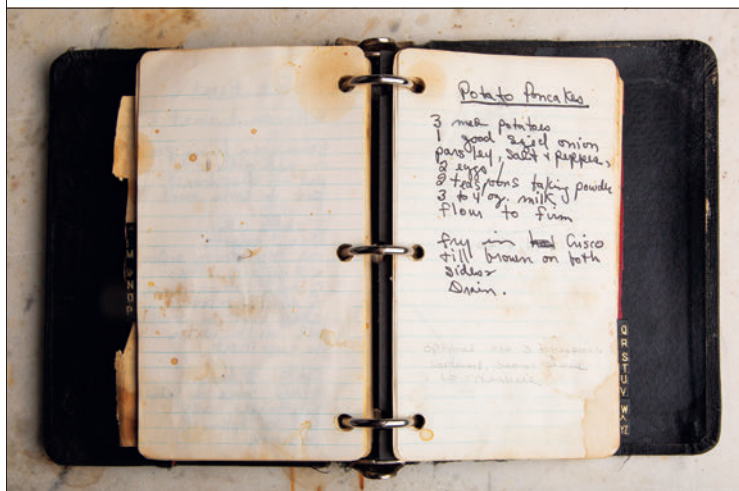 Potato Pancakes
3 med potatoes
1 good sized onion
parsley, salt + pepper,
2 eggs
2 teaspoons baking powder
3 to 4 oz. milk
flour to firm
fry in Crisco
till brown on both
sides
Drain.
M
N
O
P
Q
R
S
T
U
V
W
X
YZ